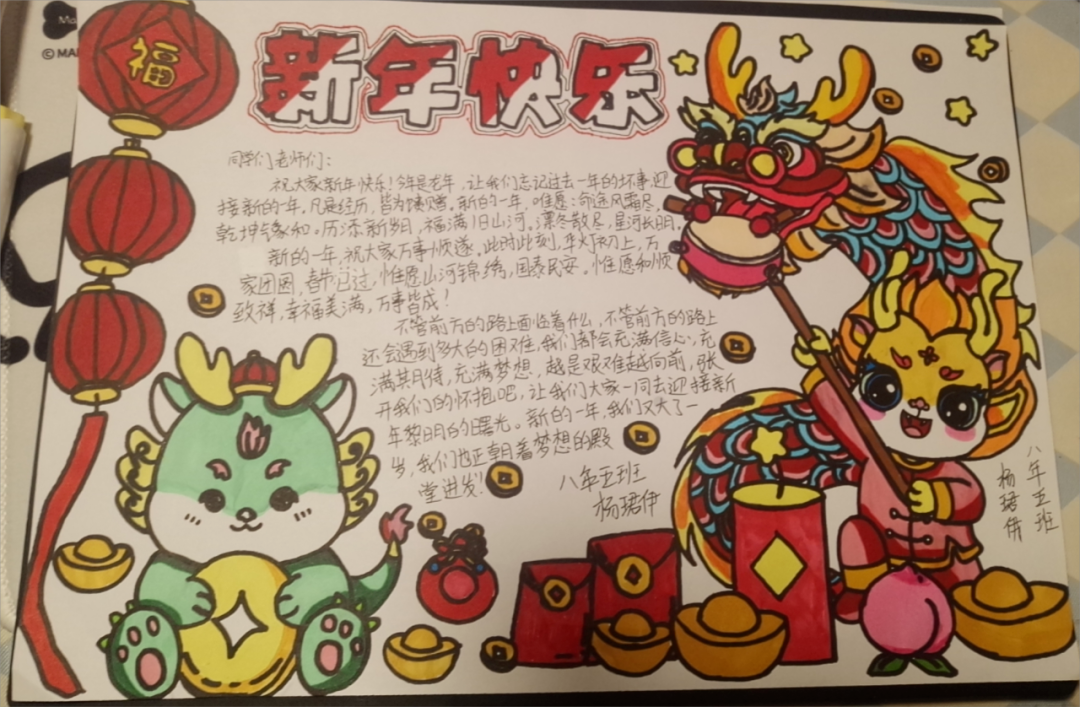 福
新年快乐
同学们老师们:
祝大家新年快乐!今年是龙年,让我们忘记过去一年的坏事,迎
接新的一年。凡是经历,皆为馈赠。新的一年,唯愿:命途风霜尽,
乾坤气象和。历添新岁月,福满旧山河。凛冬散尽,星河长明。
新的一年,祝大家万事顺遂。此时此刻,年灯初上,万
家团圆,春节已过,惟愿山河锦绣,国泰民安。惟愿和顺
致祥,幸福美满,万事皆成!
不管前方的路上面临着什么,不管前方的路上
还会遇到多大的困难,我们都会充满信心,充
满其月待,充满梦想,越是艰难越向前,张
开我们的怀抱吧,让我们大家一同去迎接新
年黎明的曙光。新的一年,我们又大了一
岁,我们也正朝着梦想的殿
堂进发!
八年五班
杨珺伊
八年五班
杨珺伊